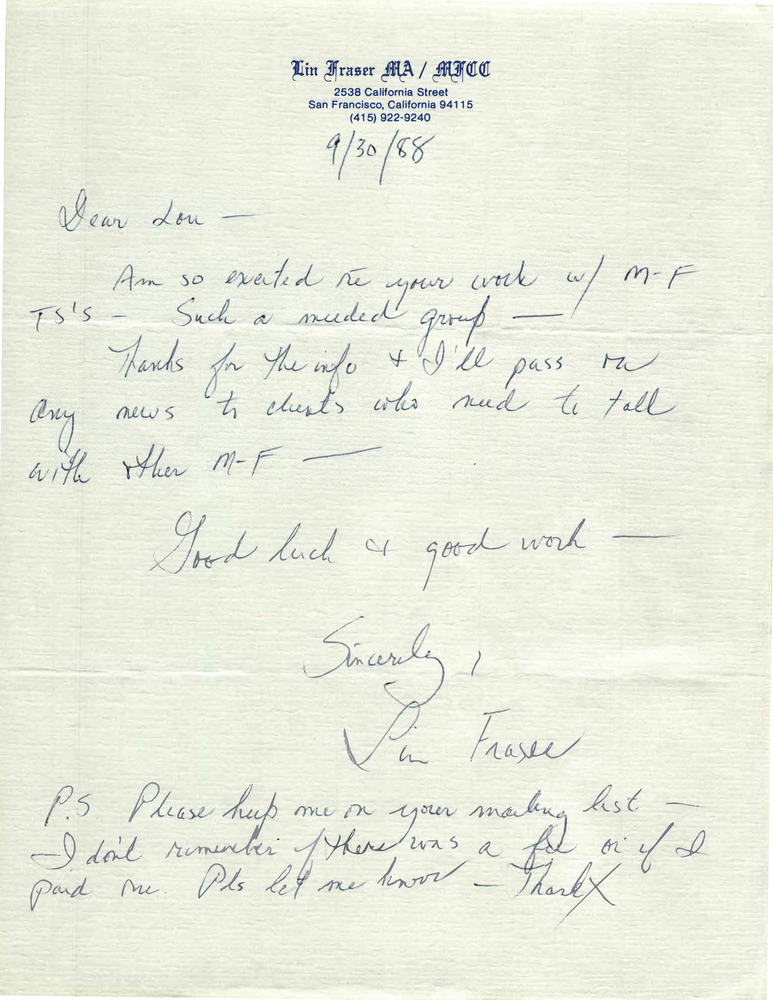 Lin Fraser MA / MFCC
2538 California Street
San Francisco, California 94115
(415) 922-9240
9/30/88
Dear Lou —
Am so excited re your work w/ M-F
TS'S — Such a needed group —
Thanks for the info & I'll pass on
any news to clients who need to talk
with other M-F —
Good luck & good work —
Sincerely,
Lin Fraser
P.S Please keep me on your mailing list —
I don't remember if there was a fee or if I
paid one. Pls let me know — ThankX